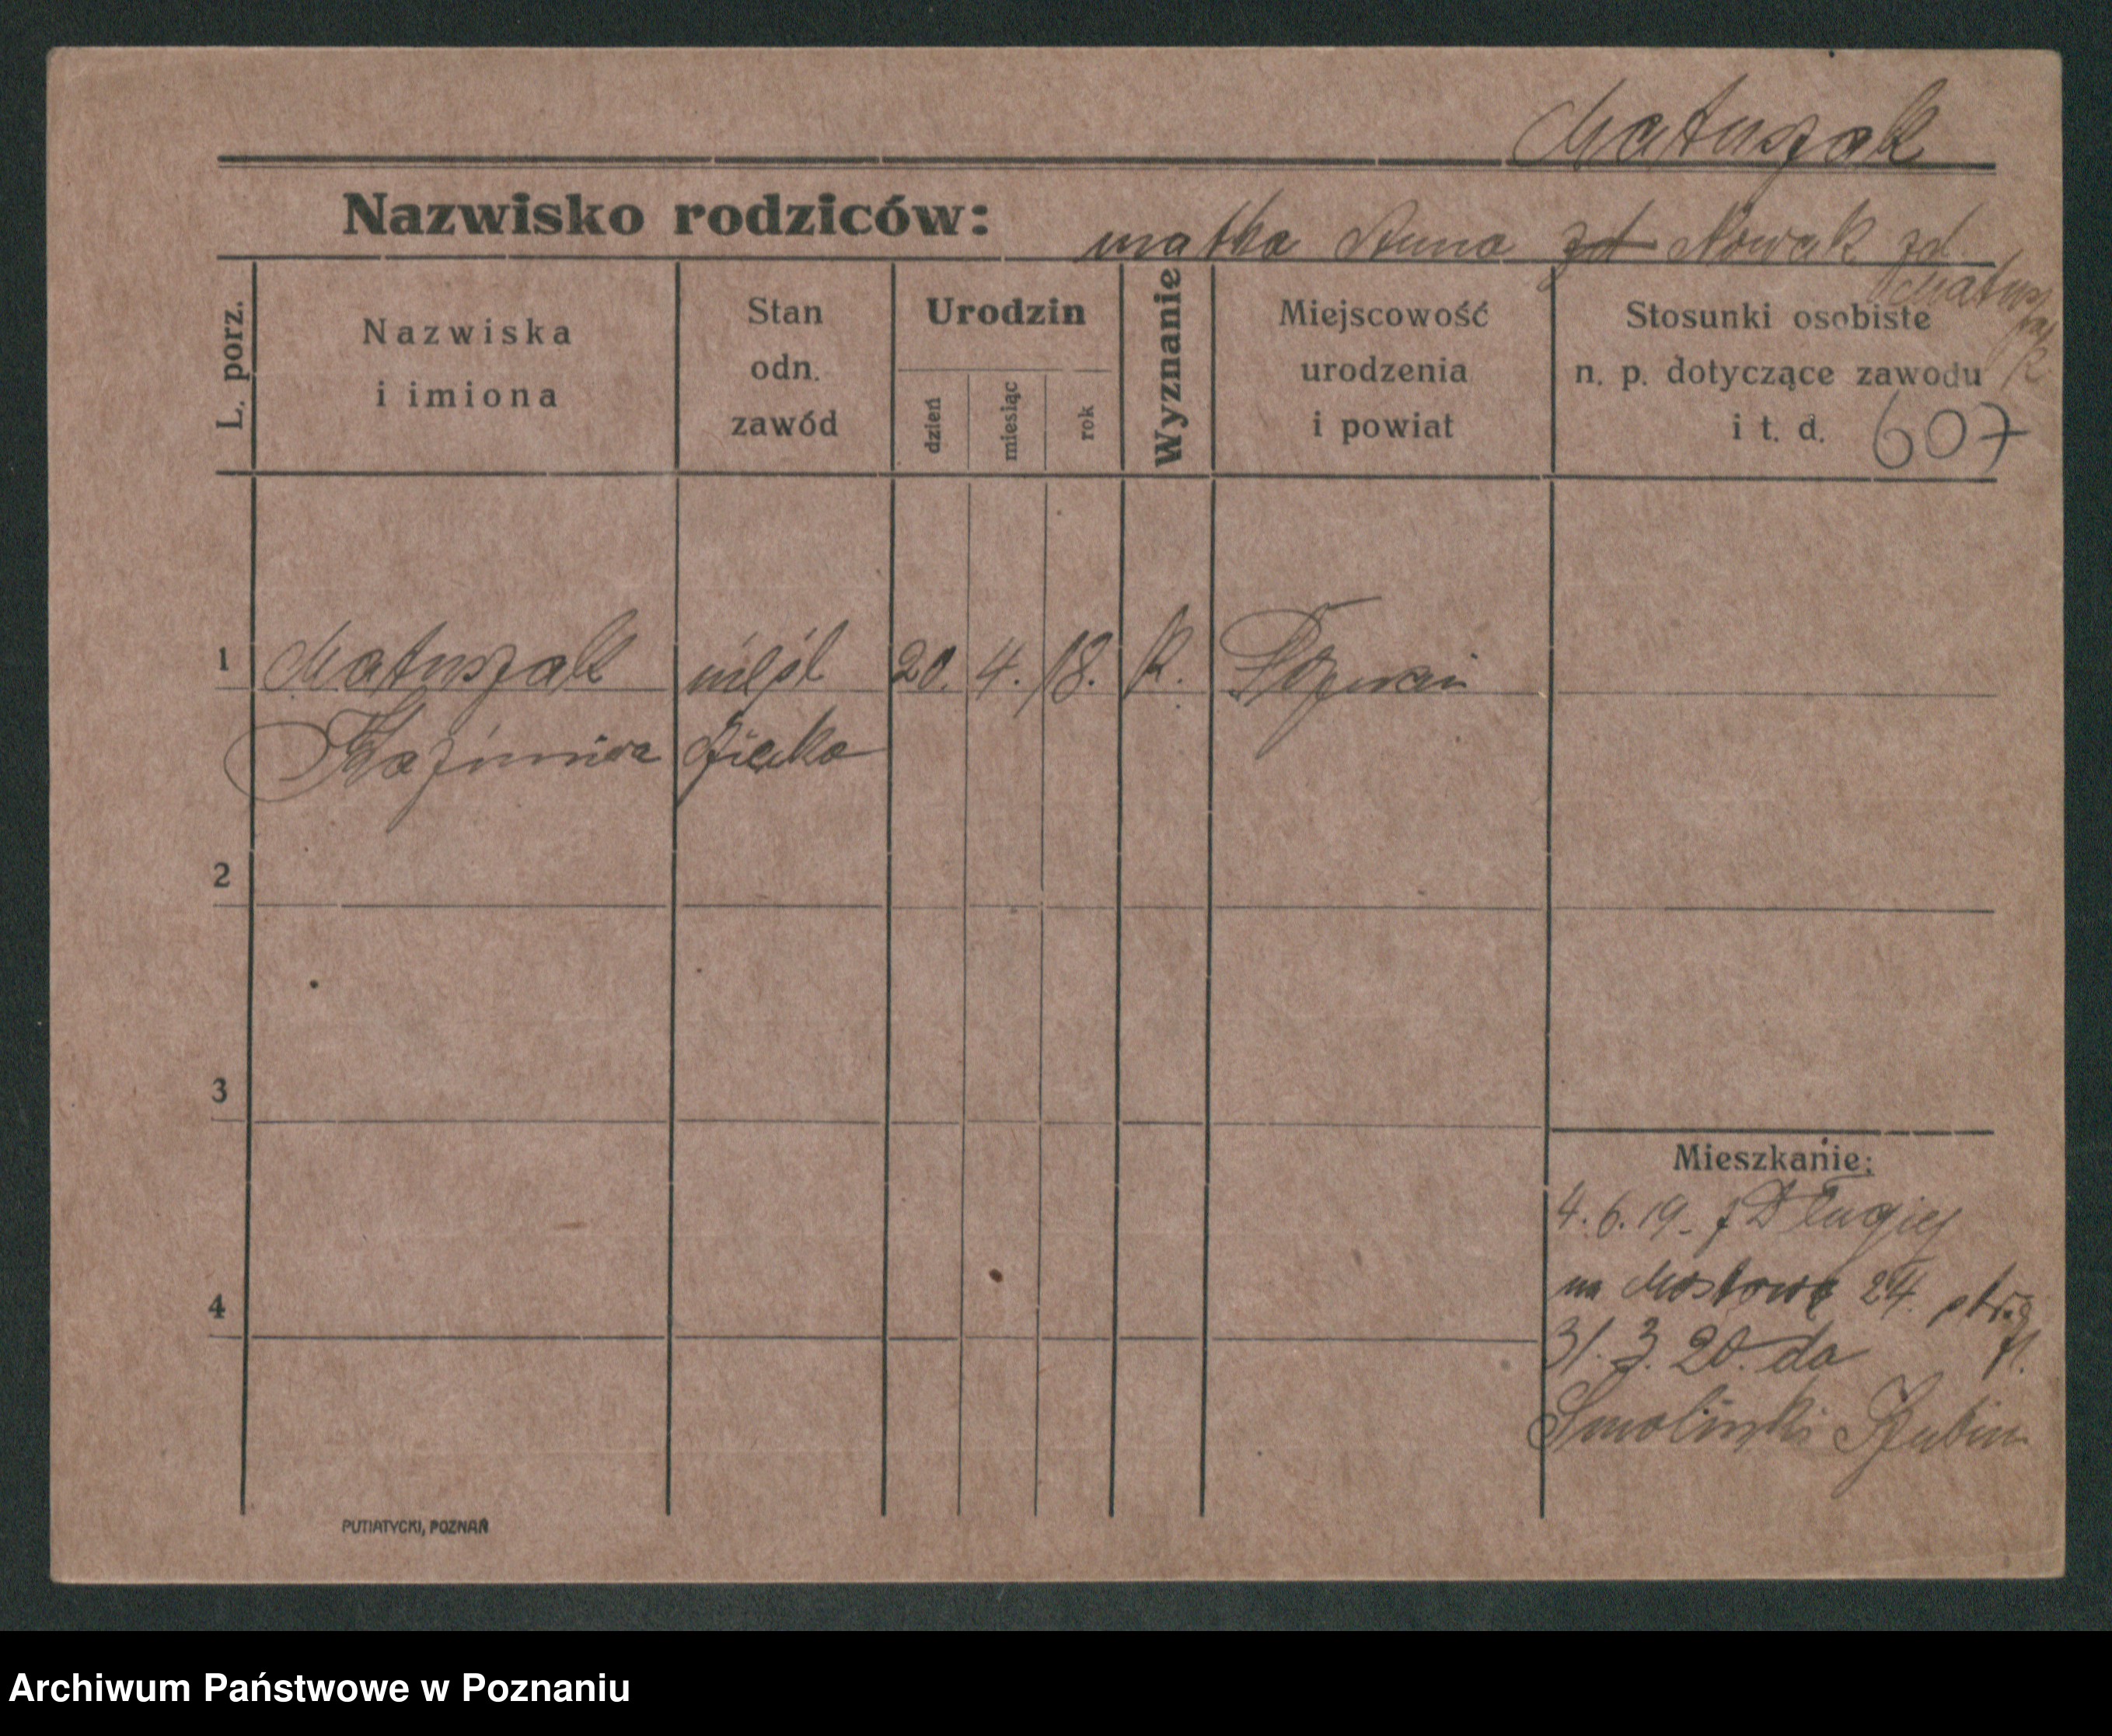 Matuszak
Nazwisko rodziców: matka Anna zd Nowak zd
Matuszak
L. porz.
Nazwiska
i imiona
Stan
odn.
zawód
Urodzin
dzień
miesiąc
rok
Wyznanie
Miejscowość
urodzenia
i powiat
Stosunki osobiste
n. p. dotyczące zawodu
i t. d. 607
1 Matuszak nieśl 20. 4. 18. k. Poznań
Kazimiera dziecko
2
3
4
Mieszkanie:
4. 6. 19. z Długiej
na Mostową 24.
31. 3. 20. do
Smoliński Szubin
PUTIATYCKI, POZNAŃ
Archiwum Państwowe w Poznaniu